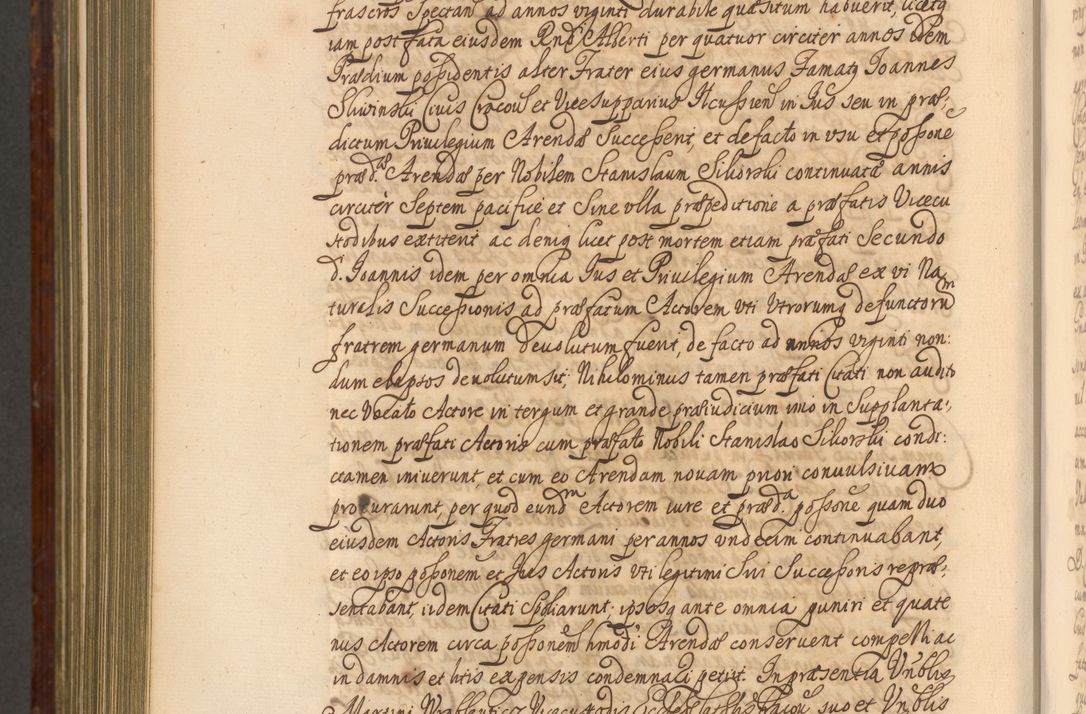 frascros Spectan ad annos viginti durabile quæsitum habuerit, licetq
iam post fata eiusdem Rndi Alberti per quatuor circiter annos idem
Prædium possidentis alter Frater eius germanus Famatq Joannes
Sliwinskii Civis Cracovs et Vicesupparius Ilcussien in Jus seu in præ:
dictum Privilegium Arendæ Successent, et de facto in usu et possone
præd.tæ Arendæ per Nobilem Stanislaum Sikorski continuata annis
circiter Septem pacifice et Sine ulla præpeditione a præfatis Vicecu
stodibus extiterit ac deniq licet post mortem etiam præfati Secundo
d. Joannis idem per omnia Jus et Privilegium Arendæ ex vi Na
turalis Successionis ad præfatum Actorem uti utrorumq defunctorum
fratrem germanum devolutum fuerit, de facto ad annos viginti non:
dum elapsos devolutum sit, Nihilominus tamen præfati Citati non audito
nec Vocato Actore in tergum et grande præiudicium imo in Supplanta:
tionem præfati Actoris cum præfato Nobili Stanislao Sikorski condi:
ctamen iniverunt, et cum eo Arendam novam priori convulsivam
procurarunt, per quod eundm Actorem iure et præd.a possone quam duo
eiusdem Actoris Fratres germani per annos undecim continuabant,
et eo ipso possonem et Jus Actoris uti legitimi Sui Successoris repræ:
sentabant, iidem Citati Spoliarunt. ipsosq ante omnia puniri et quate
nus Actorem circa possonem hmodi Arendæ conservent compelli ac
in damnis et litis expensis condemnari petiit. In præsentia Vnblis
Martini Waxlenticz Vicecustodis Ecclesiæ Cathlis Cracov suo et Vnblis